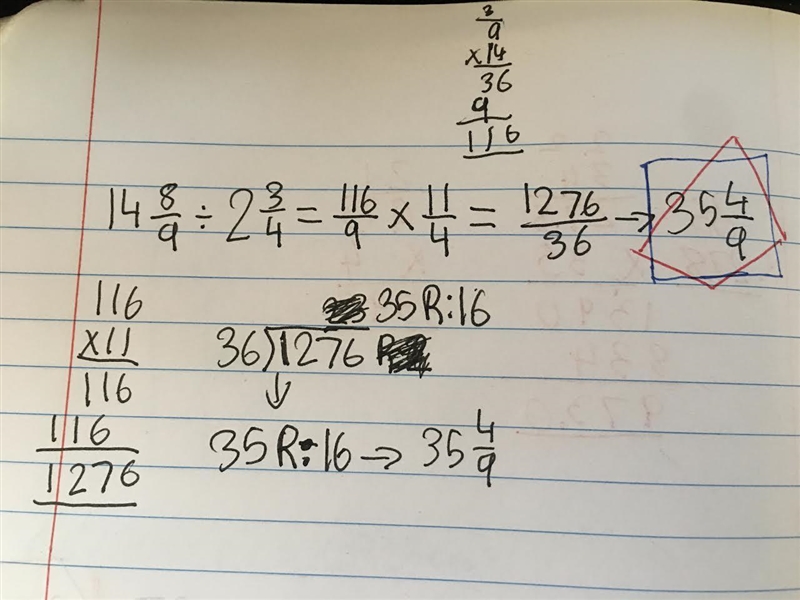 3
9
x14
36
9
116
14 8/9 ÷ 2 3/4 = 116/9 x 11/4 = 1276/36 → 35 4/9
116
x11
116
116
1276
35R:16
36)1276
↓
35R:16 → 35 4/9